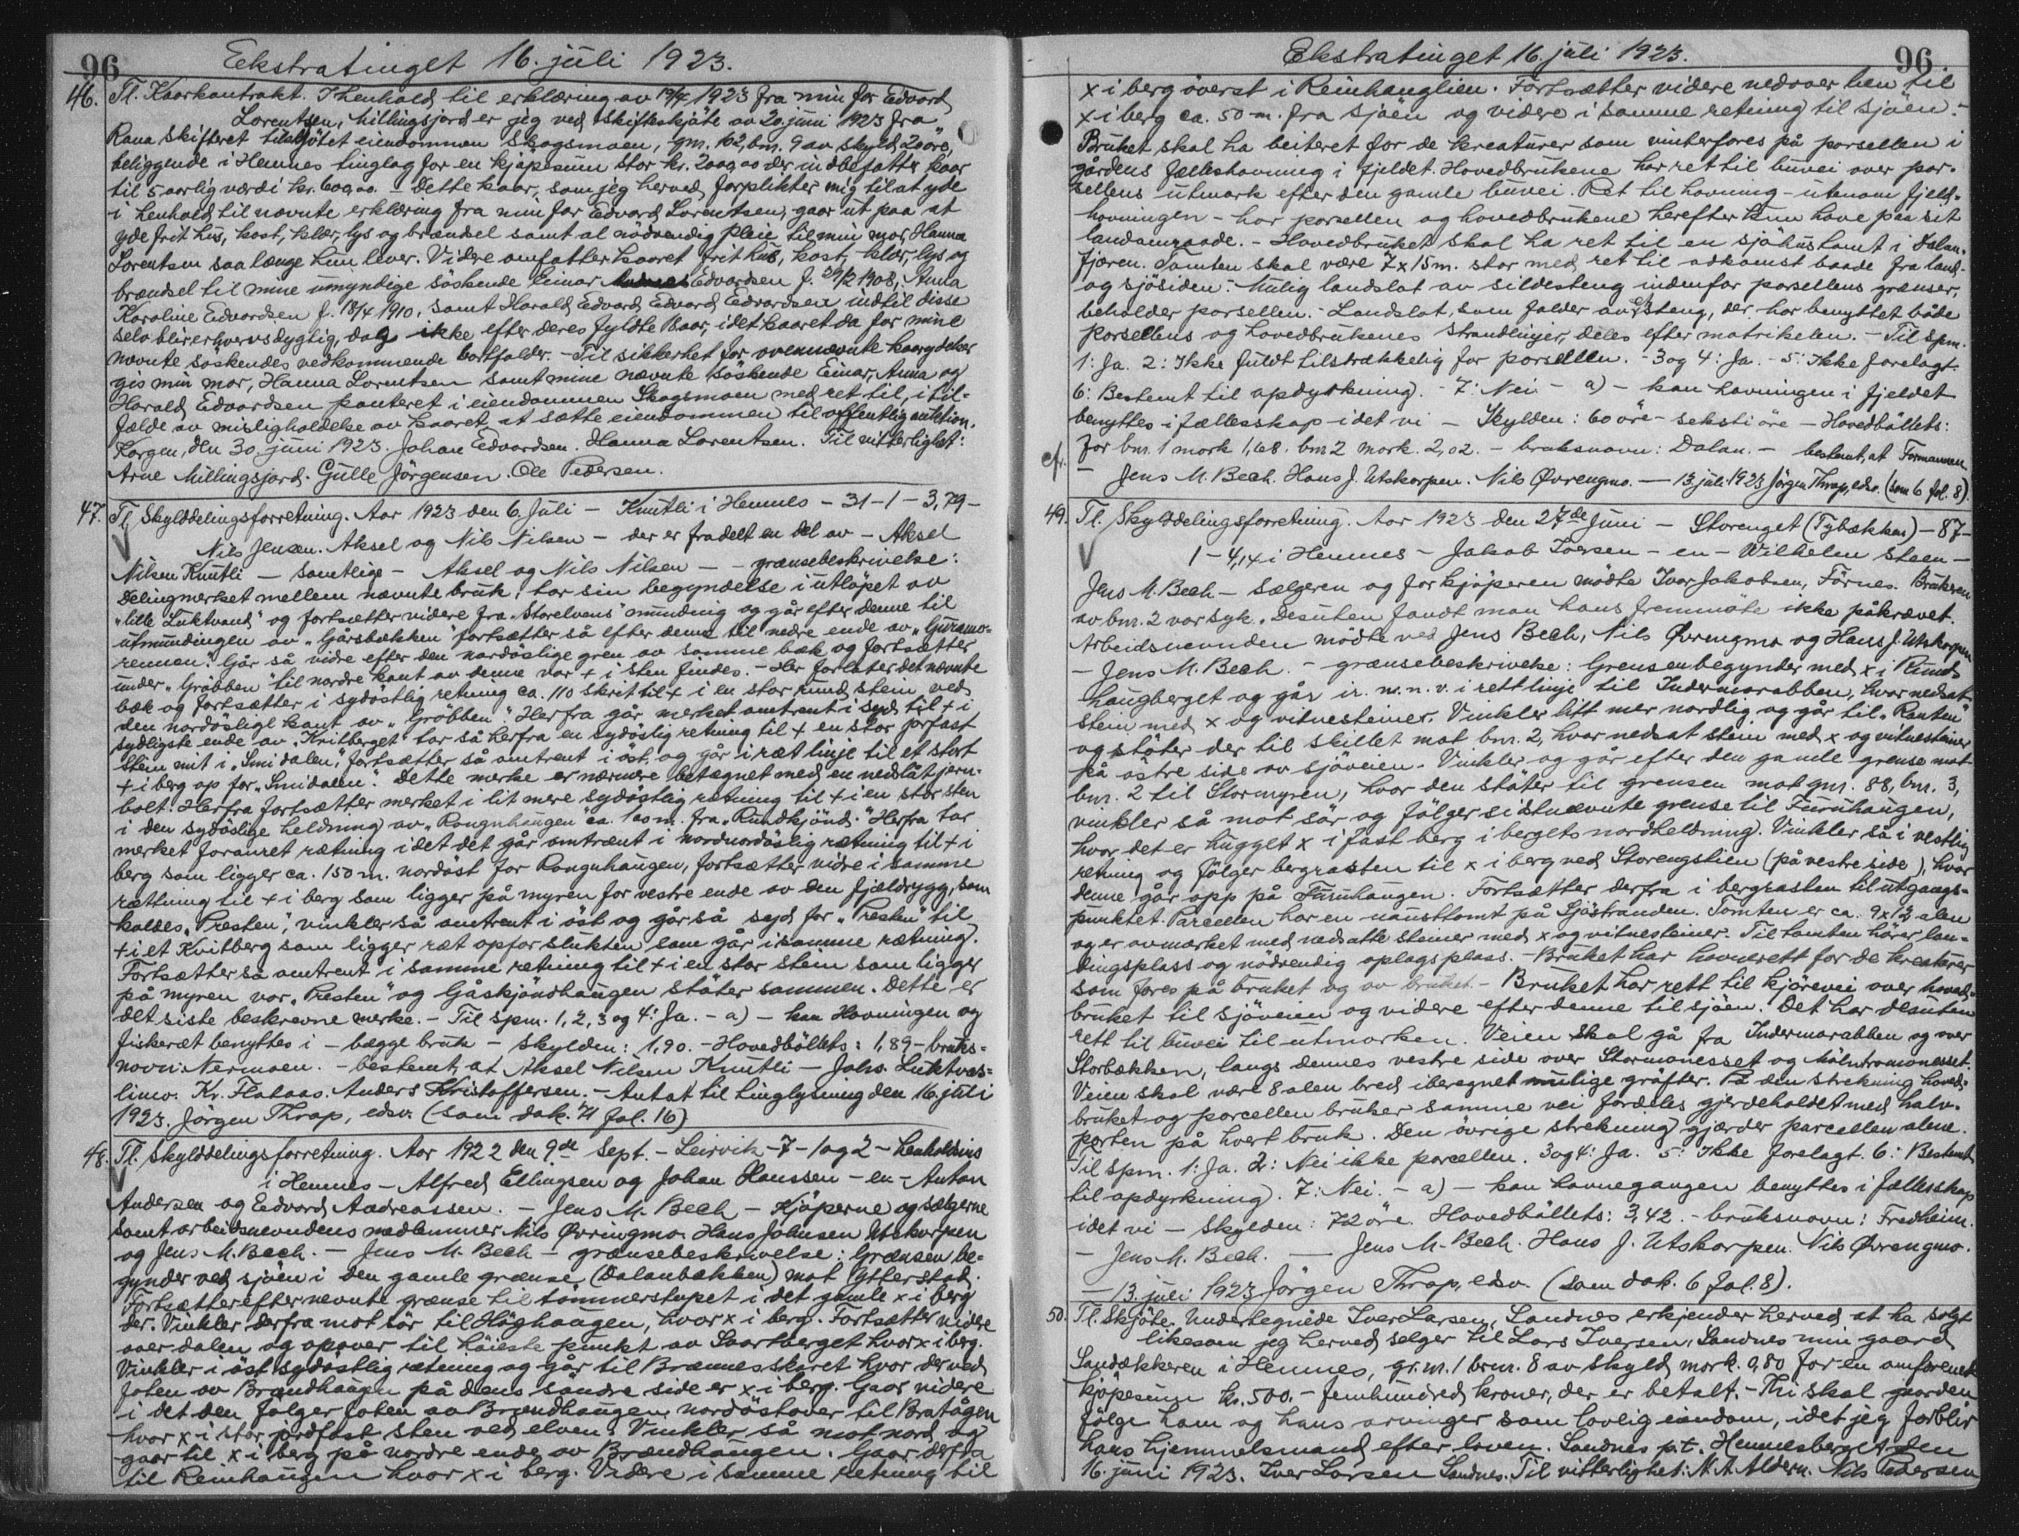 96
Ekstratinget 16. juli 1923.
46. Tl. Kaarkontrakt. I henhold til erklæring av 19/4 1923 fra min far Edvard
Lorentsen, Millingsjord er jeg ved skifteskjøte av 20. juni 1923 fra
Rana skifteret tilskjøtet eiendommen Skogsmoen, gnr. 102, bnr. 9 av skyld 20 øre,
beliggende i Hemnes tinglag for en kjøpesum stor kr. 2000,00 der indbefatter kaar
til 5 aarlig værdi kr. 600,00. – Dette kaar, som jeg herved forplikter mig til at yde
i henhold til nævnte erklæring fra min far Edvard Lorentsen, gaar ut paa at
yde frit hus, kost, klær, lys og brændsel samt al nødvendig pleie til min mor, Hanna
Lorentsen saa længe hun lever. Videre omfatter kaaret frit hus, kost, klær, lys og
brændsel til mine umyndige søskende Einar Edvardsen f. 29/2 1908, Anna
Karoline Edvardsen f. 18/4 1910, samt Harald Edvard Edvard Edvardsen indtil disse
selv blir erhvervsdygtig, dog ikke efter deres fyldte 18 aar, idet kaaret da for mine
nævnte søskendes vedkommende bortfalder. – Til sikkerhet for ovennævnte kaarydelser
gis min mor, Hanna Lorentsen samt mine nævnte søskende Einar, Anna og
Harald Edvardsen panteret i eiendommen Skogsmoen med ret til, i til-
fælde av misligholdelse av kaaret, at sætte eiendommen til offentlig auktion.
Korgen, den 30. juni 1923. Johan Edvardsen. Hanna Lorentsen. Til vitterlighet:
Arne Millingsjord. Gulle Jörgensen. Ole Pedersen.
47. Tl. Skylddelingsforretning. Aar 1923 den 6. Juli – Knutli i Hemnes – 31 – 1 – 3,79 –
Nils Jensen. Aksel og Nils Nilsen – der er fradelt en del av – Aksel
Nilsen Knutli – samtlige – Aksel og Nils Nilsen – – grænsebeskrivelse:
Delingmerket mellem nævnte bruk, har sin begyndelse i utløpet av
"lille Luktvand" og fortsætter videre fra "Storelvens" munding og går efter denne til
utmundingen av "Gårsbækken" fortsætter så efter denne til nedre ende av "Guramo-
rennen". Går så vidre efter den nordöslige gren av samme bæk og fortsætter
under "Gröbben" til nordre kant av denne var + i sten findes. – Her forlater det nævnte
bæk og fortsætter i sydöstlig retning ca. 110 skrit til + i en stor rund stein ved
den nordösligl kant av "Gröbben". Herfra går merket omtrent i syd til + i
sydligste ende av "Kvitberget" tar så herfra en sydöslig retning til + en stor jorfast
stein mit i "Smidalen", fortsætter så omtrent i öst og går i ræt linje til et stort
+ i berg op for "Smidalen". Dette merke er nærmere betægnet med en nedslåt jern-
bolt. Herfra fortsætter merket i lit mere sydöstlig retning til + i en stor sten
i den sydöslige heldning av "Rongnhaugen" ca. 100 m. fra "Rundkjönd". Herfra tar
merket foranret rætning idet det går omtrænt i nordnordöslig rætning til + i
berg som ligger ca. 150 m. nordöst for Rongnhaugen, fortsætter vidre i samme
rættning til + i berg som ligger på myren for vestre ende av den fjeldrygg, som
kaldes "Presten", vinkler så omtrent i öst og gør så syd for "Presten" til
+ i et Kvitberg som ligger ræt opfor slukten som går i samme rætning.
Fortsætter så omtrent i samme retning til + i en stor stein som ligger
på myren vor "Presten" og Gåskjöndhaugen stöter sammen. Dette er
det siste beskrevne merke. – Til spm. 1, 2, 3 og 4: Ja. – a) – kan Havningen og
fiskeræt benyttes i – bægge bruk – skylden: 1,90. – Hovedböllets: 1,89 – bruks-
navn: Nermoen. – bestemt, at Aksel Nilsen Knutli – Johs. Luktvas-
limo. Kr. Flataas. Anders Kristoffersen. – Antat til tinglysning den 16. juli
1923. Jörgen Thrap, edsv. (som dok. 71 fol. 16)
48. Tl. Skylddelingsforretning. Aar 1922 den 9de Sept. – Leirvik – 7 – 1 og 2 – henholdsvis
i Hemnes – Alfred Ellingsen og Johan Hanssen – en – Anton
Andersen og Edvard Andreassen. – Jens M. Bech – Kjöperne og selgerne
samt arbeidsnevndens medlemmer Nils Øvringmo. Hans Johnsen Utskorpen
og Jens M. Bech. – Jens M. Bech – grænsebeskrivelse: Grænsen be-
gynder ved sjöen i den gamle grænse (Dalanbækken) mot Ytterstad.
Fortsætter efter nevnte grænse til tömmerstupet i det gamle x i berg
der. Vinkler derfra mot sör til Höghaugen, hvor x i berg. Fortsætter videre
over dalen og opover til höieste punkt av Svartberget hvor x i berg.
Vinkler i öst sydöstlig retning og går til Brennesskaret hvor der ved
foten av Brændhaugen på dens söndre side er x i berg. Gaar videre
i det den fölger foten av Brændhaugen nordöstover til Bratågen
hvor x i stor jordfast sten ved elven. Vinkler så mot nord og
gaar til x i berg på nordre ende av Brændhaugen. Gaar derfra
til Reinhaugen hvor x i berg. Videre i samme retning til
Ekstratinget 16. juli 1923.
96
x i berg överst i Reinhauglien. Fortsætter videre nedover lien til
x i berg ca. 50 m. fra sjöen og videre i samme retning til sjöen. –
Bruket skal ha beiteret for de kreaturer som vinterfores på parsellen i
gårdens fælleshavning i fjeldet. Hovedbrukene har ret til buvei over par-
sellens utmark efter den gamle buvei. Ret til havning – utenom fjeld-
havningen – har parsellen og hovedbrukene herefter kun have paa sit
landomraade. – Hovedbruket skal ha ret til en sjöhustomt i Dalan-
fjæren. Tomten skal være 7 x 15 m. stor med ret til adkomst baade fra land-
og sjösiden. Mulig landslot av sildesteng indenfor parsellens grænser,
beholder parsellen. – Landslot, som falder av steng, der har benyttet både
parsellens og hovedbrukenes strandlinjer, deles efter matrikelen. – Til spm.
1: Ja. 2: Ikke fuldt tilstrækkelig for parsellen. – 3 og 4: Ja. – 5: Ikke forelagt.
6: Bestemt til opdyrkning. – 7: Nei – a) – kan havningen i fjeldet
benyttes i fællesskap – idet vi – Skylden: 60 öre – seksti öre – Hovedböllets:
for bnr. 1 mark 1,68. bnr 2 mark. 2,02. – bruksnavn: Dalan. – bestemt, at Formannen
cfr. – Jens M. Bech. Hans J. Utskorpen. Nils Øvrengmo. – 13. juli 1923 Jörgen Thrap, edsv. (som 6 fol. 8)
49. Tl. Skylddelingsforretning. Aar 1923 den 27de Juni – Storenget (Tybækken) – 87 –
1 – 4,14 i Hemnes – Jakob Iversen – en – Wilhelm Steen –
Jens M. Bech – Sælgeren og for kjöperen mödte Ivar Jakobsen, Förnes. Brukeren
av bnr. 2 var syk. Desuten fandt man hans fremmöte ikke påkrævet.
Arbeidsnevnden mödte ved Jens Bech, Nils Øvrengmo og Hans J. Utskorpen
– Jens M. Bech. – grænsebeskrivelse: Grensen begynder med x i Rund-
haugberget og går i n. n. v. i rett linje til Indermorabben, hvor nedsat
stein med x og vitnesteiner. Vinkler litt mer nordlig og går til "Ranten"
og stöter der til skillet mot bnr. 2, hvor nedsat stein med x og vitnesteiner
på östre side av sjöveien. Vinkler og går efter den gamle grense mot
bnr. 2 til Stormyren, hvor den stöter til grensen mot gnr. 88, bnr. 3,
vinkler så mot sör og fölger sistnævnte grense til Furuhaugen,
hvor det er hugget x i fast berg i bergets nordheldning. Vinkler så i vestlig
retning og fölger bergrasten til x i berg ved Storengstien (på vestre side), hvor
denne går opp på Furuhaugen. Fortsætter derfra i bergrasten til utgangs-
punktet. Parcellen har en nausttomt på Sjöstranden. Tomten er ca. 9x12 alen
og er avmerket med nedsatte steiner med x og vitnesteiner. Til tomten hörer lan-
dingsplass og nödvendig oplagsplass. – Bruket har havnerett for de kreaturer
som fores på bruket og av bruket. – Bruket har rett til kjörevei over hoved-
bruket til sjöveien og videre efter denne til sjöen. Det har desuten
rett til buvei til utmarken. Veien skal gå fra Indermorabben og over
Storbækken, langs dennes vestre side over Stormonesset og
Veien skal være 8 alen bred iberegnet mulige gröfter. På den strekning hoved-
bruket og parcellen bruker samme vei fordeles gjerdeholdet med halv-
parten på hvert bruk. Den övrige strekning gjærder parcellen alene.
Til spm. 1: Ja. 2: Nei ikke parcellen. 3 og 4: Ja. 5: Ikke forelagt. 6: Bestemt
til opdyrkning. 7: Nei. – a) – kan havnegangen benyttes i fællesskap
idet vi – Skylden: 72 öre. Hovedböllets: 3,42. – bruksnavn: Fredheim.
– Jens M. Bech. – Jens M. Bech. Hans J. Utskorpen. Nils Øvrengmo.
– 13. juli 1923 Jörgen Thrap, edsv. (som dok. 6 fol. 8).
50. Tl. Skjöte. Undertegnede Iver Larsen, Sandnes erkjender herved at ha solgt
likesom jeg herved selger til Lars Iversen, Sandnes min gaard
Sandækkeren i Hemnes, gr. nr. 1 brnr. 8 av skyld mark. 0,80 for en omforenet
kjöpesum kr. 500. – femhundred kroner, der er betalt. – Thi skal gaarden
fölge ham og hans arvinger som lovlig eiendom, idet jeg forblir
hans hjemmelsmand efter loven. Sandnes p.t. Hemnesberget den
16. juni 1923. Iver Larsen Sandnes. Til vitterlighet: N. A. Aldern. Nils Pedersen